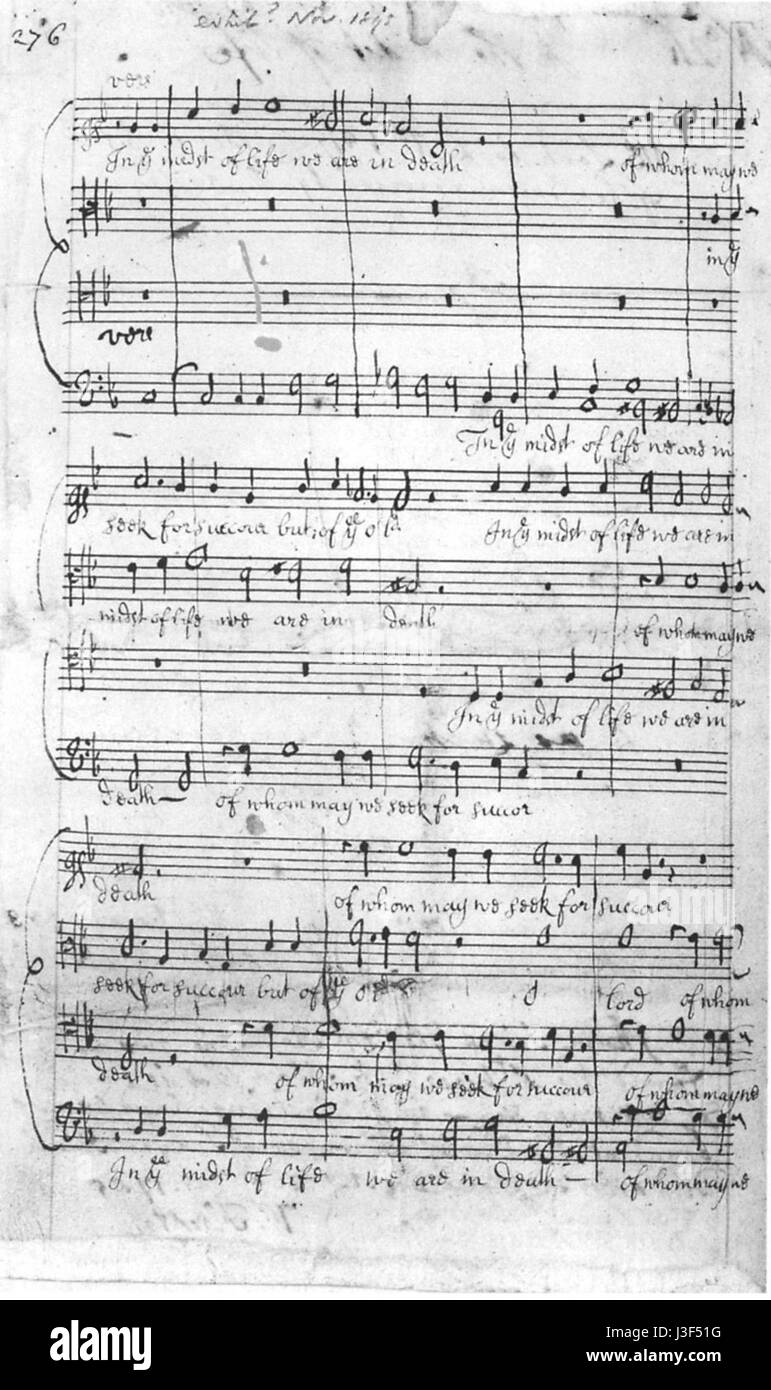 276
Nov. 1895
vers
In yͤ midst of life we are in death of whom may we
in yͤ
vers
In yͤ midst of life we are in
seek for succour but of yͤ o In yͤ midst of life we are in
midst of life we are in death of whom may we
In yͤ midst of life we are in
death of whom may we seek for succor
death of whom may we seek for succour
seek for succour but of yͤ o lord of whom
death of whom may we seek for succour of whom may we
In yͤ midst of life we are in death of whom may we
alamy
Image ID: J3F51G
www.alamy.com